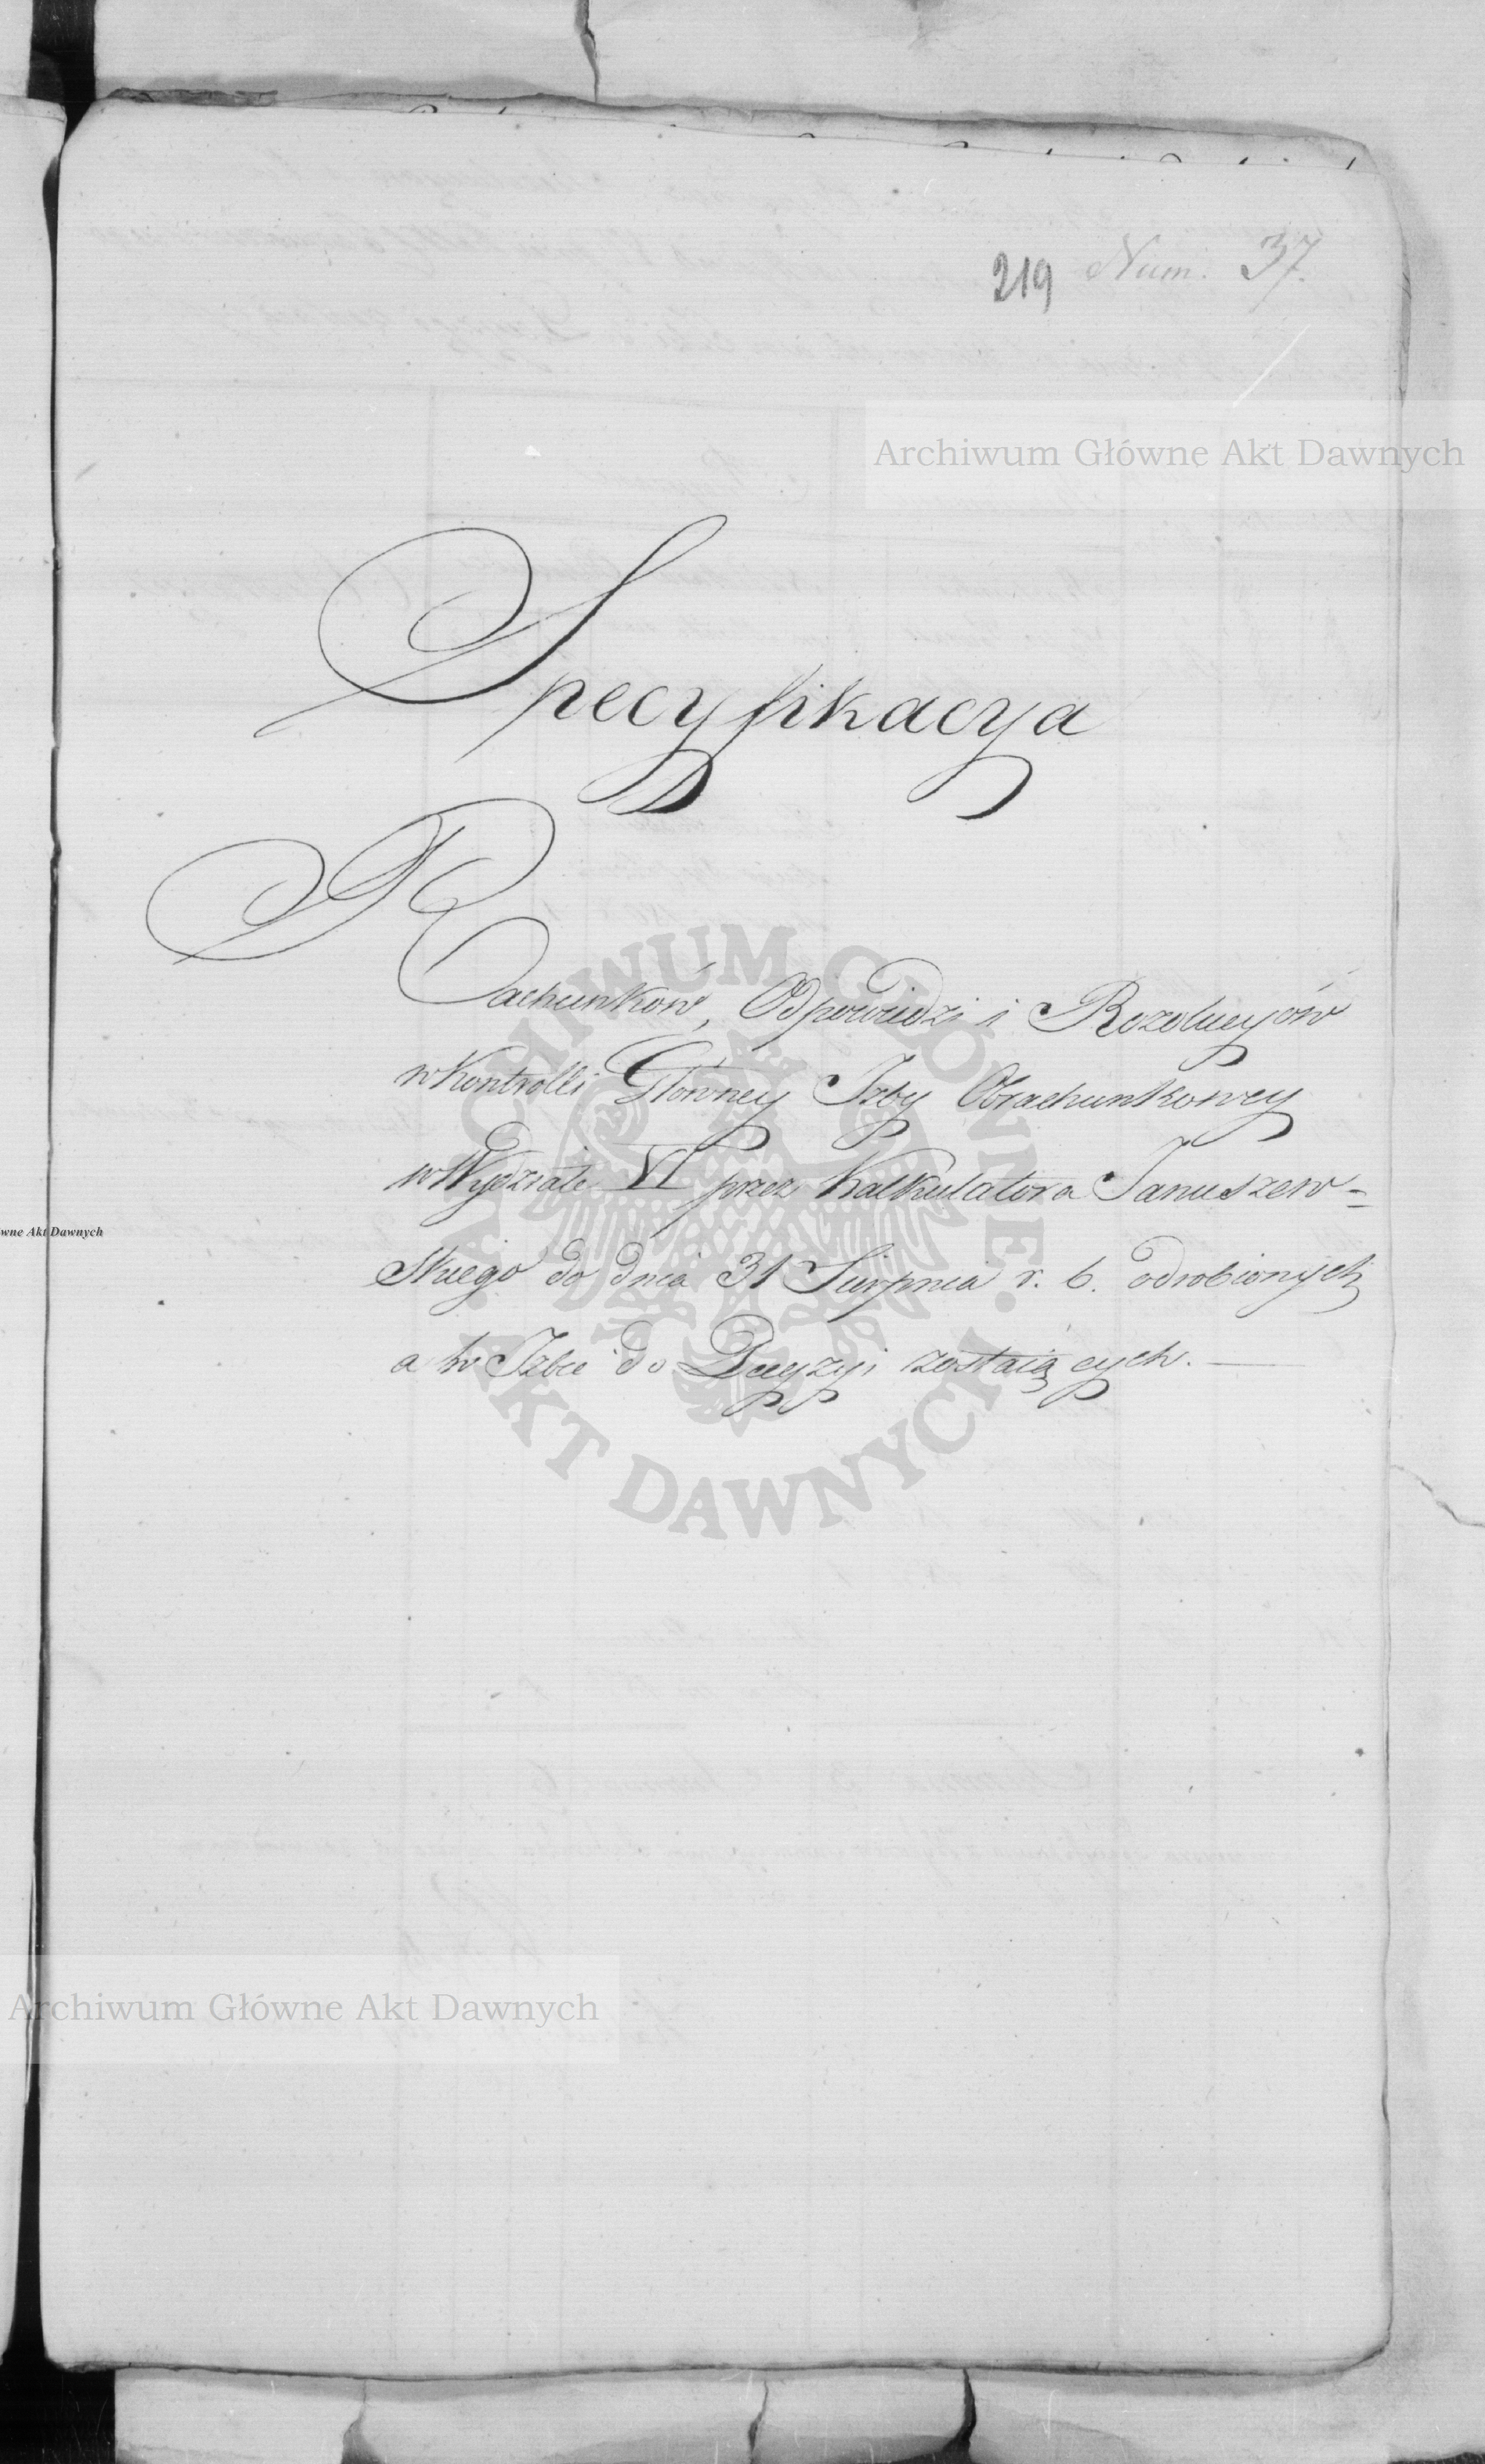 219 Num. 37.
Archiwum Główne Akt Dawnych
Specyfikacya
Rachunków, Odpowiedzi i Rezolucyów
w Kontrolli Główney Izby Obrachunkowey
w Wydziale VI przez Kalkulatora Januszew=
skiego do dnia 31 Sierpnia r. b. odrobionych
a w Izbie do Decyzyi zostaiących. —
ARCHIWUM GŁÓWNE AKT DAWNYCH
wne Akt Dawnych
Archiwum Główne Akt Dawnych